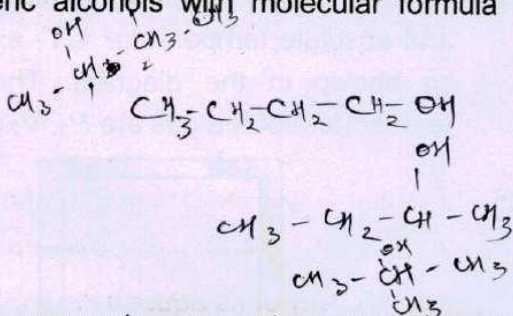 eric alcohols with molecular formula
OH
CH3 - CH3 - CH3 - CH3
CH3-CH2-CH2-CH2-OH
OH
CH3 - CH2 - CH - CH3
OH
CH3 - CH - CH3
CH3